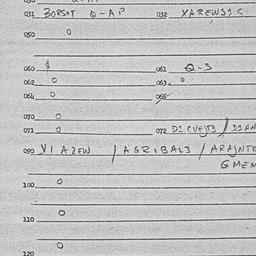 030
031 ZORSAT Q-AP 032 XAREWSIS
050 0
060 $ 061 Q-S
062 0 063 0
064 0 065
070 0
071 0 072 DICUEJTS / DIAN
099 VI AZEW / AGRIBALS / ARAJNTE
GMEN
100 0
110 0
120 0